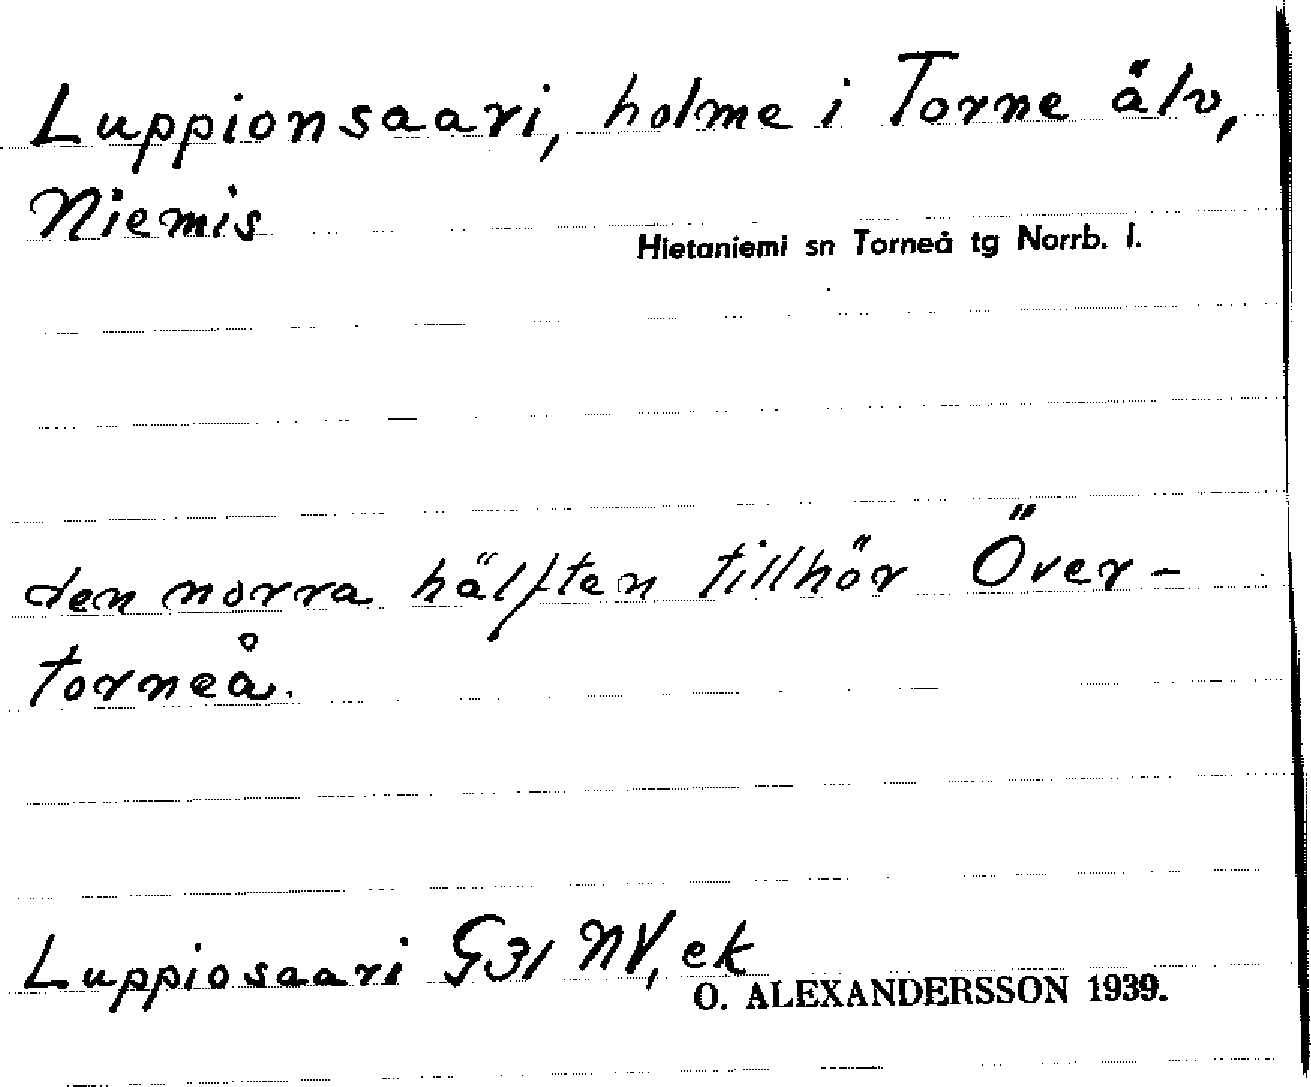 Luppionsaari, holme i Torne älv,
Niemis
Hietaniemi sn Torneå tg Norrb. l.
den norra hälften tillhör Över-
torneå.
Luppiosaari G31 NV, ek
O. ALEXANDERSSON 1939.